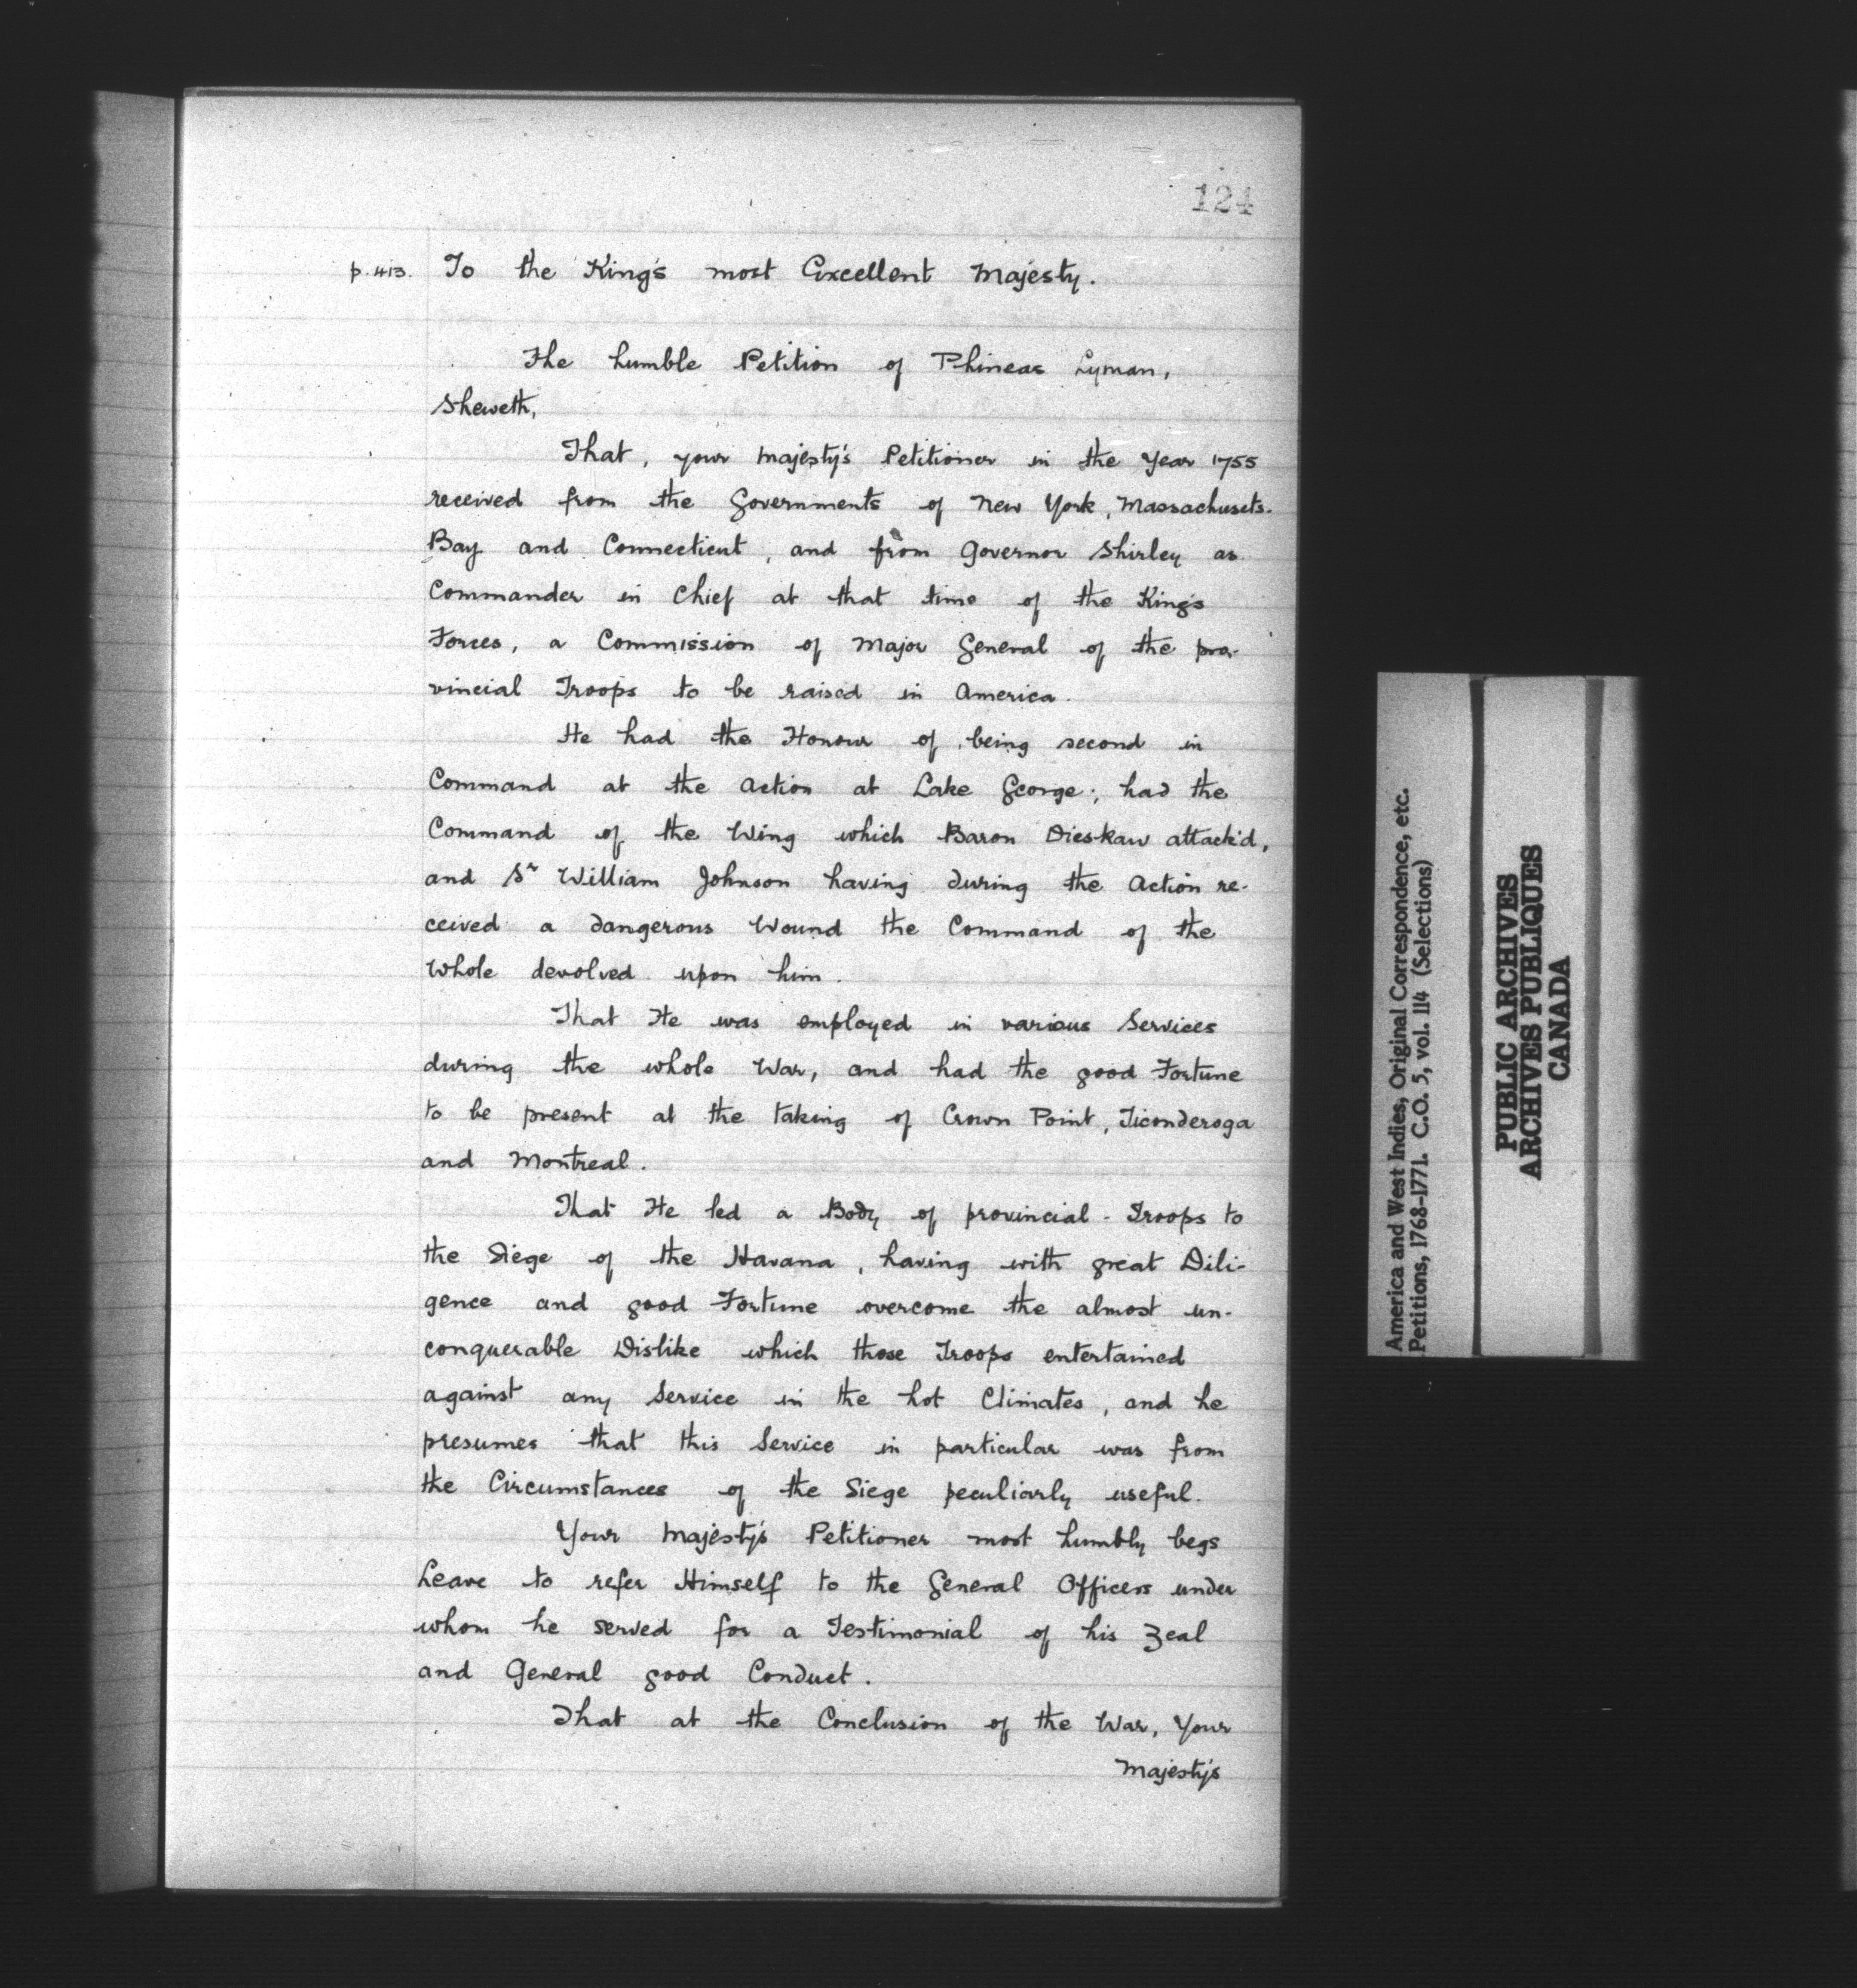 124
p. 413. To the King's most Excellent Majesty.
The humble Petition of Phineas Lyman,
Sheweth,
That, your Majesty's Petitioner in the Year 1755
received from the Governments of New York, Massachusets-
Bay and Connecticut, and from Governor Shirley as
Commander in Chief at that time of the King's
Forces, a Commission of Major General of the pro-
vincial Troops to be raised in America.
He had the Honour of being second in
Command at the Action at Lake George; had the
Command of the Wing which Baron Dieskaw attack'd,
and Sr William Johnson having during the Action re-
ceived a dangerous Wound the Command of the
Whole devolved upon him.
That He was employed in various Services
during the whole War, and had the good Fortune
to be present at the taking of Crown Point, Ticonderoga
and Montreal.
That He led a Body of provincial-Troops to
the Siege of the Havana, having with great Dili-
gence and good Fortune overcome the almost un-
conquerable Dislike which those Troops entertained
against any Service in the hot Climates, and he
presumes that this Service in particular was from
the Circumstances of the Siege peculiarly useful.
Your Majesty's Petitioner most humbly begs
Leave to refer Himself to the General Officers under
whom he served for a Testimonial of his Zeal
and General good Conduct.
That at the Conclusion of the War, Your
Majesty's
America and West Indies, Original Correspondence, etc.
Petitions, 1768-1771. C.O. 5, vol. 114 (Selections)
PUBLIC ARCHIVES
ARCHIVES PUBLIQUES
CANADA